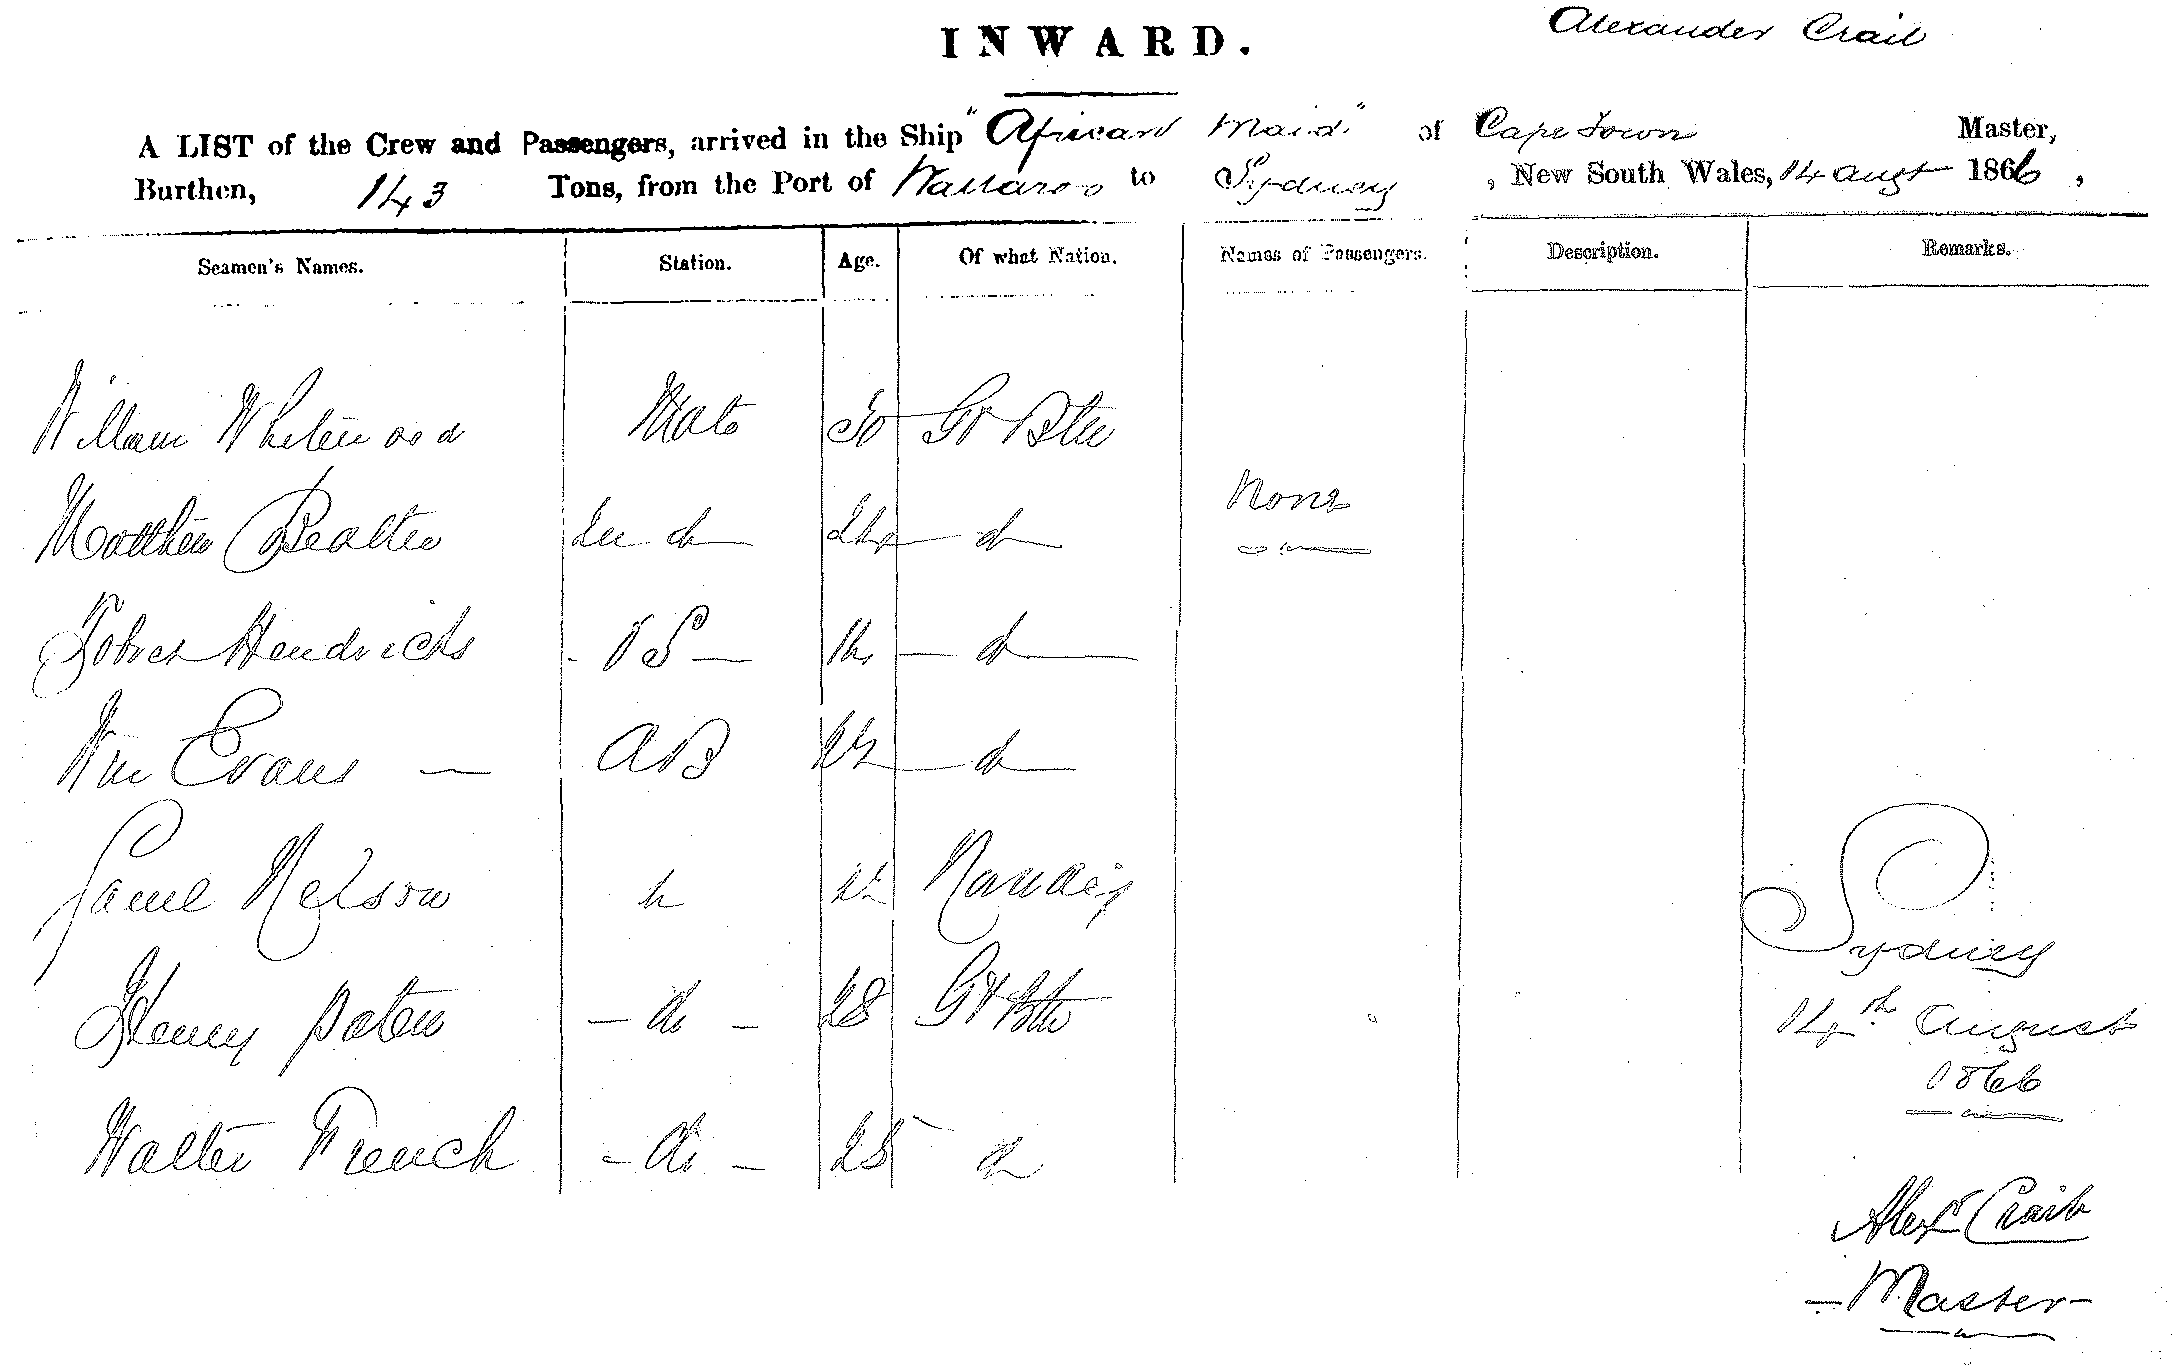 INWARD.
Alexander Crail
A LIST of the Crew and Passengers, arrived in the Ship "African Maid" of Cape Town Master,
Burthen, 143 Tons, from the Port of Wallaroo to Sydney, New South Wales, 14 Augt 1866,
Seamen's Names. Station. Age. Of what Nation. Names of Passengers. Description. Remarks.
William Whitewood Mate 30 Gt Btn
None
Matthew 2n do 24 do
Hendricks OS do
Wm Evans AB do
Saml Nelson do
Sydney
Henry Paten do 28 Gt Btn
14th August
1866
Walter French do 25 do
Alexr
Master